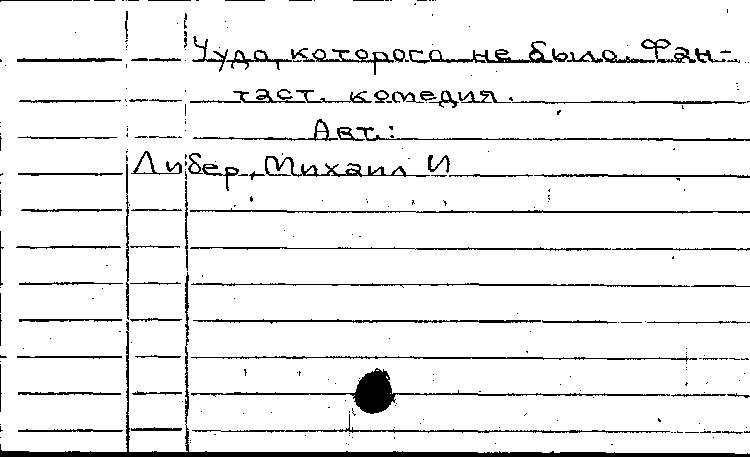 Чудо, которого не было. Фан-
таст. комедия.
Авт.:
Либер, Михаил И